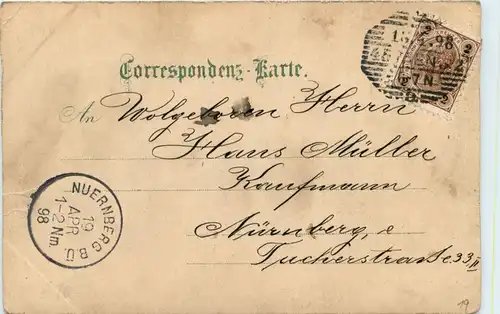 Correspondenz-Karte.
An Wolgeboren Herrn
Hans Müller
Kaufmann
Nürnberg
Tucherstraße 33 II
NUERNBERG B.Ü.
19
APR
1-2 Nm.
98
98
2
2
19